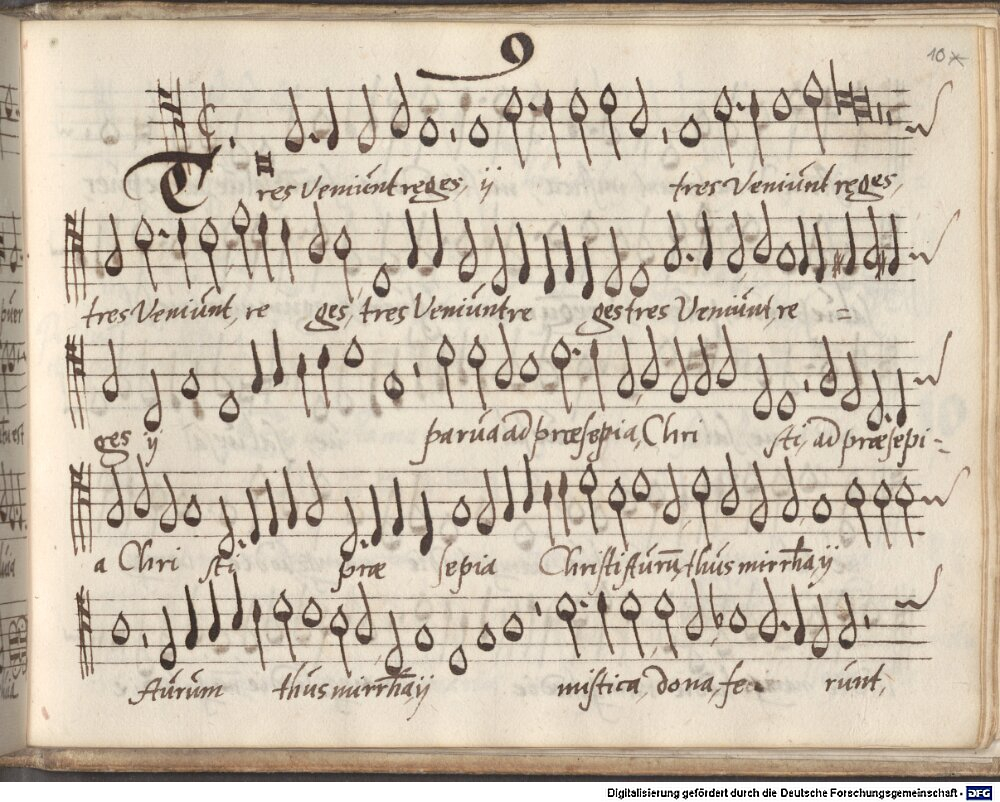 9
10
Tres Veniunt reges, ij tres Veniunt reges,
tres Veniunt, re ges, tres Veniunt re ges tres Veniunt, re =
ges ij parua ad præsepia, Chri sti, ad præsepi =
a Chri sti præ sepia Christi Aurū, thus mirrha, ij
Aurum thus mirrha ij mistica, dona, fe runt,
Digitalisierung gefördert durch die Deutsche Forschungsgemeinschaft - DFG